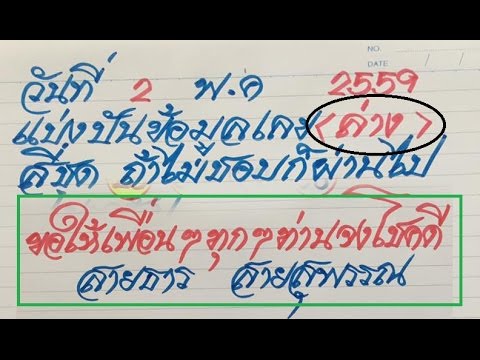 NO.
DATE
วันที่ 2 พ.ค 2559
แบ่งปันข้อมูลเลข <ล่าง>
สี่ชุด ถ้าไม่ชอบก็ผ่านไป
ขอให้เพื่อนๆทุกๆท่านจงโชคดี
สายธาร สายสุพรรณ